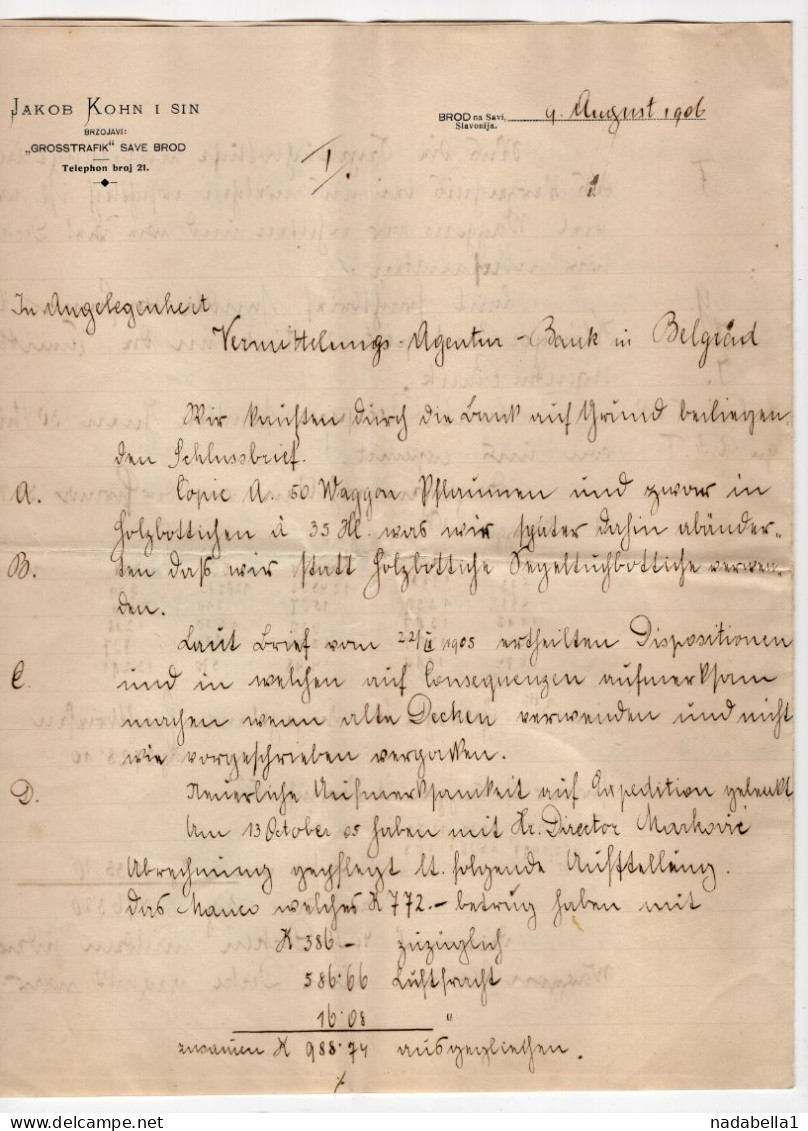 JAKOB KOHN I SIN
BRZOJAVI:
„GROSSTRAFIK“ SAVE BROD
Telephon broj 21.
BROD na Savi, 9. August 1906
Slavonija.
I/.
In Angelegenheit
Vermittelungs-Agentur-Bank in Belgrad
Wir kauften durch die Bank auf Grund beiliegen
den Schlussbrief.
A. Copie A. 50 Waggon Pflaumen und zwar in
Holzbottichen à 35 Hl. was wir später dahin abänder-
B. ten daß wir statt Holzbottiche Segeltuchbottiche verwen-
den.
Laut Brief vom 22/ 1905 ertheilten Dispositionen
C. und in welchen auf Consequenzen aufmerksam
machen wenn alte Decken verwenden und nicht
wie vorgeschrieben
D. Neuerliche Aufmerksamkeit auf Expedition gelenkt
Am 13 October 05 haben mit Hr. Director Marković
Abrechnung gepflegt lt. folgende Aufstellung.
Das Manco welches K 772.- betrug haben mit
K 386.- zuzüglich
586.66 Luftfracht
16.08 "
K 988.74 ausgegliechen.
nadabella1